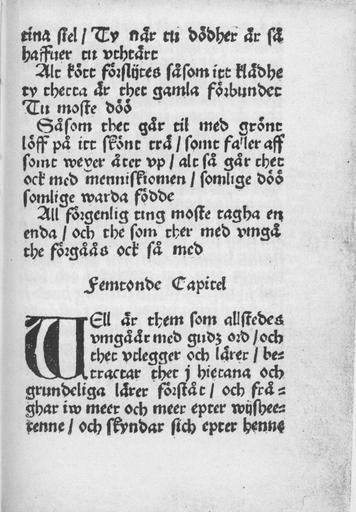 tina siel / Ty när tu dödher är så
haffuer tu vthtärt
Alt kött förslijtes såsom itt klädhe
ty thetta är thet gamla förbundet
Tu moste döö
Såsom thet går til med grönt
löff på itt skönt trä / somt faller aff
somt wexer åter vp / alt så går thet
ock med menniskiomen / somlige döö
somlige warda födde
All förgenlig ting moste tagha en
enda / och the som ther med vmgå
the förgåås ock så med
Femtonde Capitel
WEll är them som allstedes
vmgåår med gudz ord / och
thet vtlegger och lärer / be-
tractar thet j hiertana och
grundeliga lärer förstå t / och frå-
ghar iw meer och meer epter wijshee-
tenne / och skyndar sich epter henne